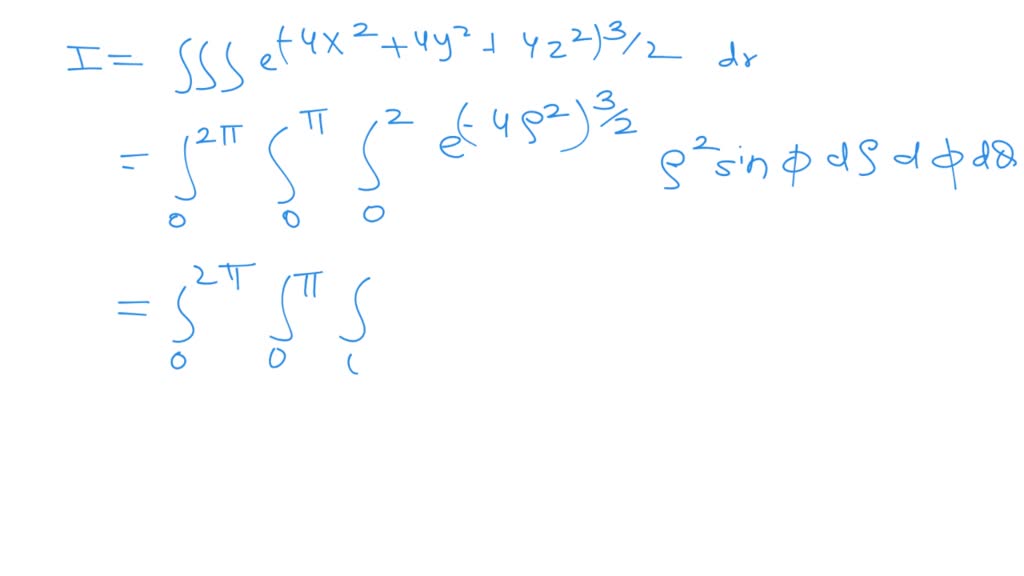 I = ∫∫∫ e^(-4x^2 + 4y^2 + 4z^2)^3/2 dr
= ∫_0^2π ∫_0^π ∫_0^2 e^(-4ρ^2)^3/2 ρ^2 sin ϕ dρ dϕ dθ
= ∫_0^2π ∫_0^π ∫_(